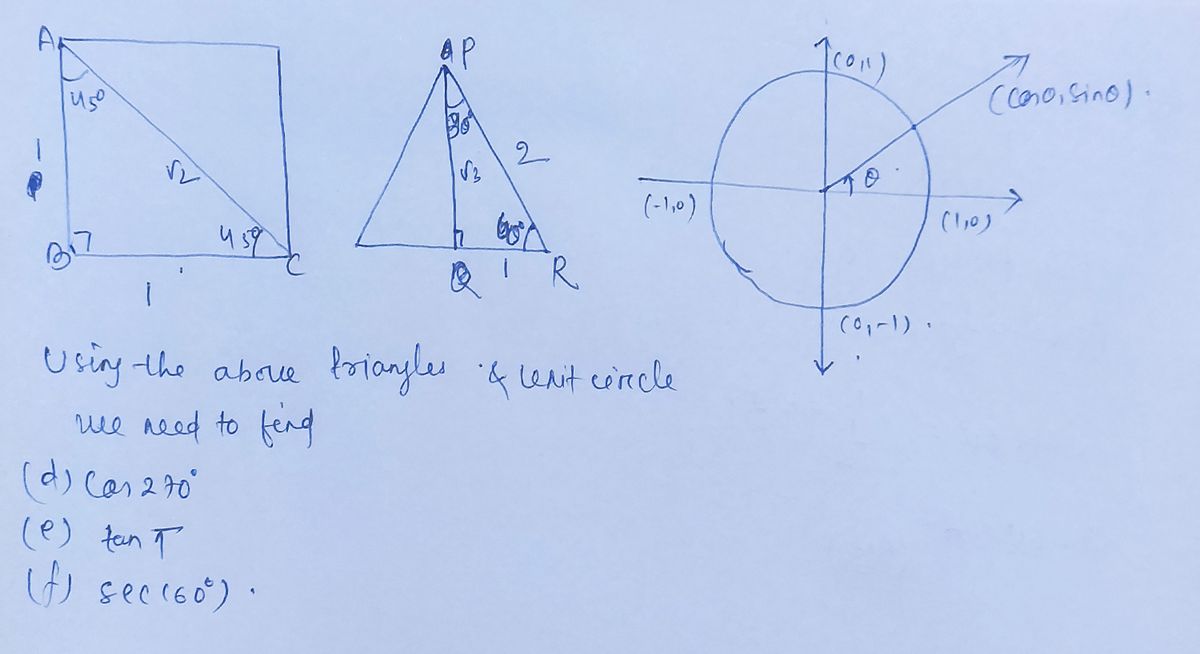 A
45°
1
√2
B
45°
C
1
P
30°
2
√3
60°
Q
1
R
(0,1)
(cosθ, sinθ).
θ
(-1,0)
(1,0)
(0,-1).
Using the above triangles & unit circle
we need to find
(d) Cos 270°
(e) tan π
(f) sec(60°).